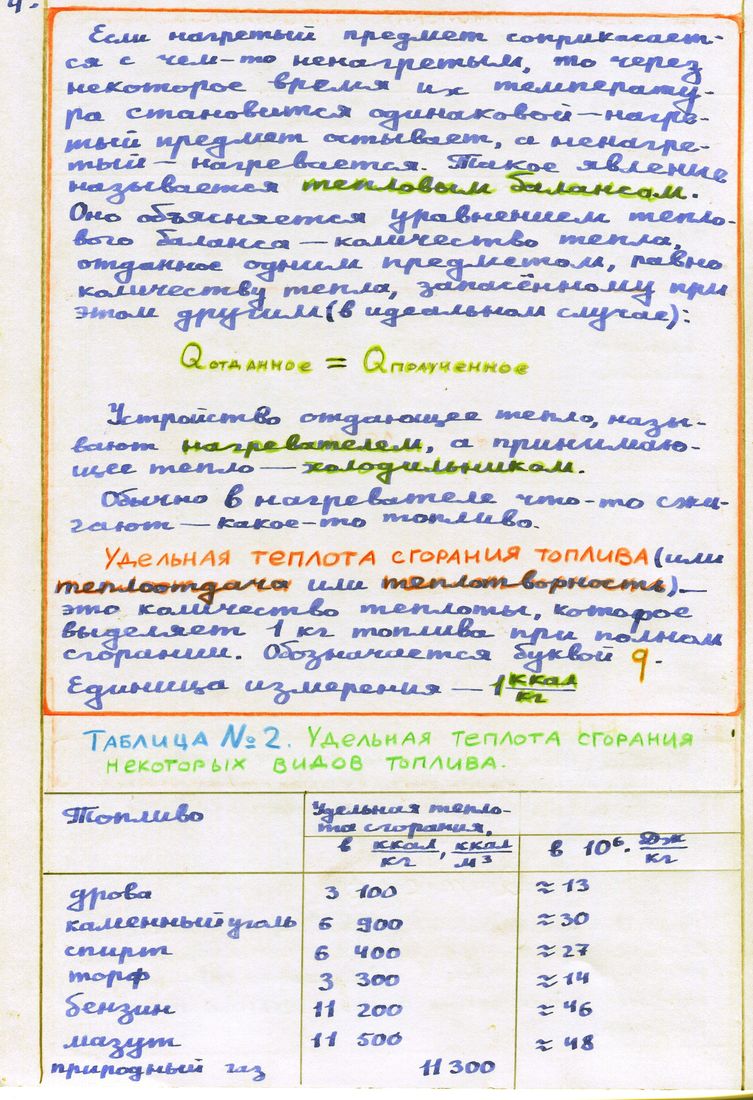 4.
Если нагретый предмет соприкасает-
ся с чем-то ненагретым, то через
некоторое время их температу-
ра становится одинаковой—нагре-
тый предмет остывает, а ненагре-
тый — нагревается. Такое явление
называется тепловым балансом.
Оно объясняется уравнением тепло-
вого баланса — количество тепла,
отданное одним предметом, равно
количеству тепла, запасённому при
этом другим (в идеальном случае):
Qотданное = Qполученное
Устройство отдающее тепло, назы-
вают нагревателем, а принимаю-
щее тепло — холодильником.
Обычно в нагревателе что-то сжи-
гают — какое-то топливо.
Удельная теплота сгорания топлива (или
теплоотдача или теплотворность) —
это количество теплоты, которое
выделяет 1 кг топлива при полном
сгорании. Обозначается буквой q.
Единица измерения — 1 ккал/кг
Таблица №2. Удельная теплота сгорания
некоторых видов топлива.
Топливо Удельная тепло-
та сгорания,
в ккал/кг, ккал/м³ в 10⁶ · Дж/кг
дрова 3 100 ≈ 13
каменный уголь 6 900 ≈ 30
спирт 6 400 ≈ 27
торф 3 300 ≈ 14
бензин 11 200 ≈ 46
мазут 11 500 ≈ 48
природный газ 11 300